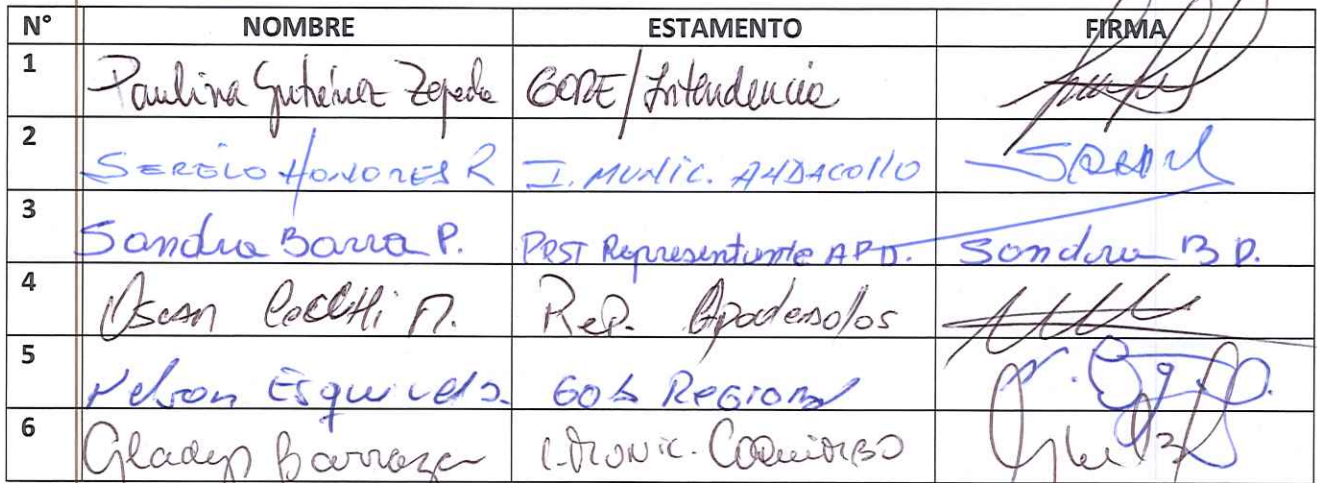 N° NOMBRE ESTAMENTO FIRMA
1 Paulina Gutiérrez Zepeda GORE/Intendencia
2 SERGIO HONORES R I. MUNIC. ANDACOLLO
3 Sandra Barra P. PRST Representante APD. Sandra B P.
4 Oscar Rep. Apoderados
5 Nelson Esquivel GOB REGIONAL
6 Gladys Barraza I. MUNIC. COQUIMBO